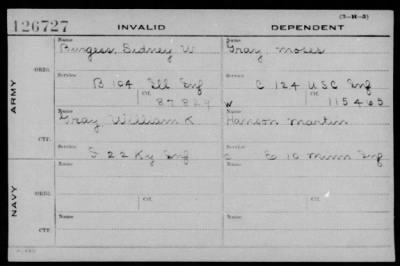 (3-H-3)
126727 INVALID DEPENDENT
Name Name
Burgess, Sidney W Gray, Moses
ORIG. Service Service
B 104 Ill Inf C 124 USC Inf
Ctf. Ctf.
87829 W 115465
ARMY
Name Name
Gray William K Hanson Martin
CTF. Service Service
S 22 Ky Inf C E 10 Minn Inf
Name Name
NAVY ORIG. Service Service
Ctf. Ctf.
Name Name
CTF. Service Service